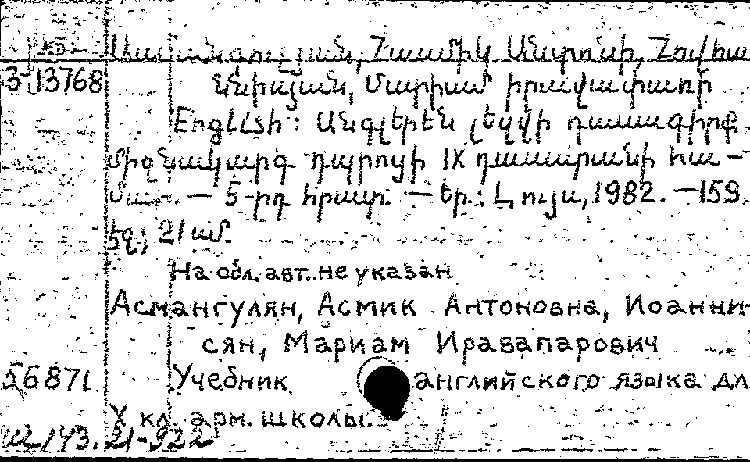 Ասմանգուլյան, Հասմիկ Անտոնի, Հովհա
3-13768 ննիսյան, Մարիամ Իրավափառի
English: Անգլերեն լեզվի դասագիրք
միջնակարգ դպրոցի IX դասարանի հա-
մար. — 5-րդ հրատ. — Եր.: Լույս, 1982. — 159
էջ; 21 սմ.
На обл. авт. не указан
Асмангулян, Асмик Антоновна, Иоанни-
сян, Мариам Иравапарович
56871 Учебник английского языка дл
X кл. арм. школы.
143. 21-922